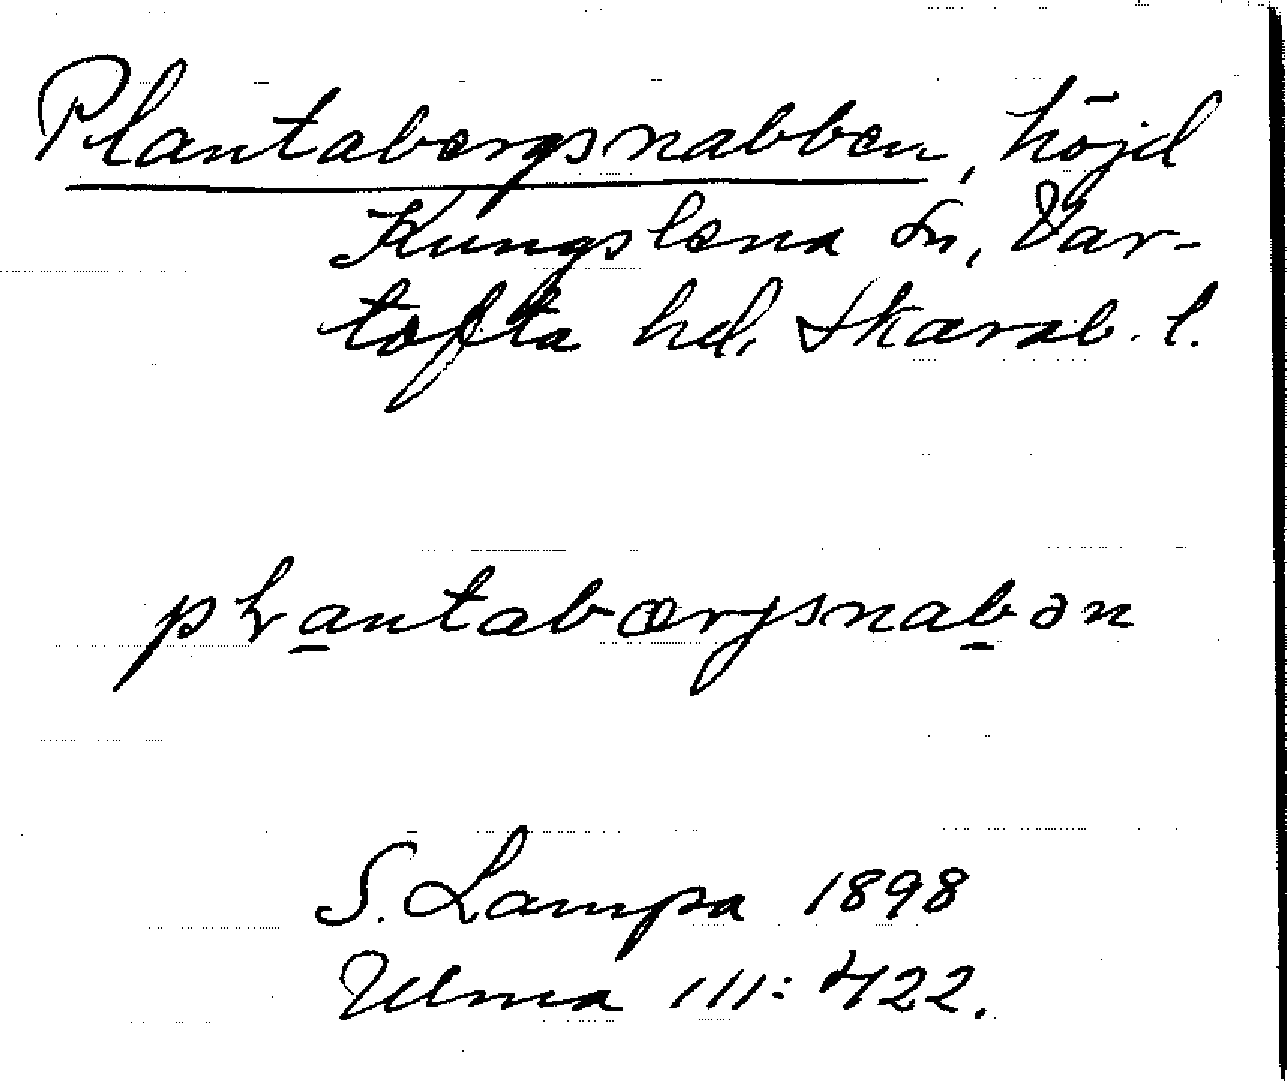 Plantabergsnabben, höjd
Kungslena sn, Var-
tofta hd, Skarab. l.
pḷantabærjsnabən
S. Lampa 1898
Ulma 111: 422.